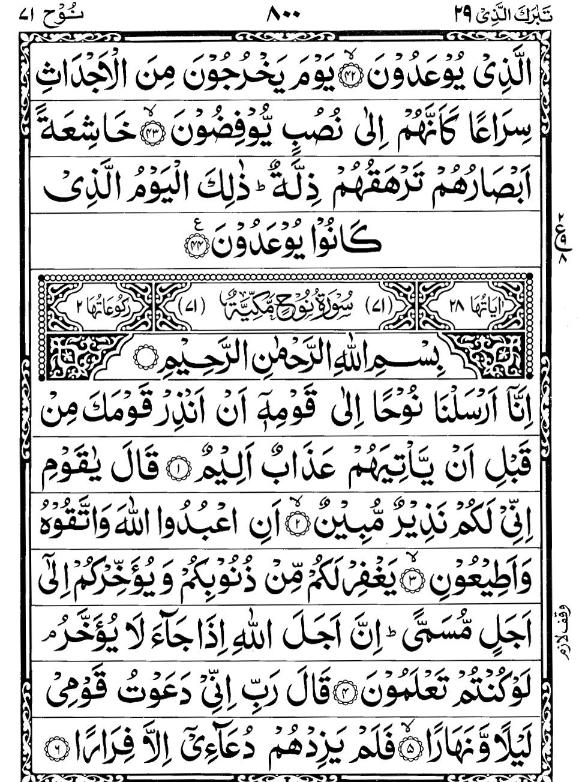 تَبٰرَكَ الَّذِیْ ٢٩ ٨٠٠ نُوْح ٧١
الَّذِیْ یُوْعَدُوْنَ ﴿٤٢﴾ۙ یَوْمَ یَخْرُجُوْنَ مِنَ الْاَجْدَاثِ
سِرَاعًا كَاَنَّهُمْ اِلٰی نُصُبٍ یُّوْفِضُوْنَ ﴿٤٣﴾ۙ خَاشِعَةً
اَبْصَارُهُمْ تَرْهَقُهُمْ ذِلَّةٌ ؕ ذٰلِكَ الْیَوْمُ الَّذِیْ
كَانُوْا یُوْعَدُوْنَ ﴿٤٤﴾ ع
اٰیَاتُهَا ٢٨ (٧١) سُوْرَةُ نُوْحٍ مَّكِّیَّةٌ (٧١) رُكُوْعَاتُهَا ٢
بِسْمِ اللّٰهِ الرَّحْمٰنِ الرَّحِیْمِ
اِنَّاۤ اَرْسَلْنَا نُوْحًا اِلٰی قَوْمِهٖۤ اَنْ اَنْذِرْ قَوْمَكَ مِنْ
قَبْلِ اَنْ یَّاْتِیَهُمْ عَذَابٌ اَلِیْمٌ ﴿١﴾ قَالَ یٰقَوْمِ
اِنِّیْ لَكُمْ نَذِیْرٌ مُّبِیْنٌ ﴿٢﴾ۙ اَنِ اعْبُدُوا اللّٰهَ وَاتَّقُوْهُ
وَاَطِیْعُوْنِ ﴿٣﴾ۙ یَغْفِرْ لَكُمْ مِّنْ ذُنُوْبِكُمْ وَیُؤَخِّرْكُمْ اِلٰۤی
اَجَلٍ مُّسَمًّی ؕ اِنَّ اَجَلَ اللّٰهِ اِذَا جَآءَ لَا یُؤَخَّرُ ۘ
لَوْ كُنْتُمْ تَعْلَمُوْنَ ﴿٤﴾ قَالَ رَبِّ اِنِّیْ دَعَوْتُ قَوْمِیْ
لَیْلًا وَّنَهَارًا ﴿٥﴾ۙ فَلَمْ یَزِدْهُمْ دُعَآءِیْۤ اِلَّا فِرَارًا ﴿٦﴾
٢ ع ٨
وقف لازم